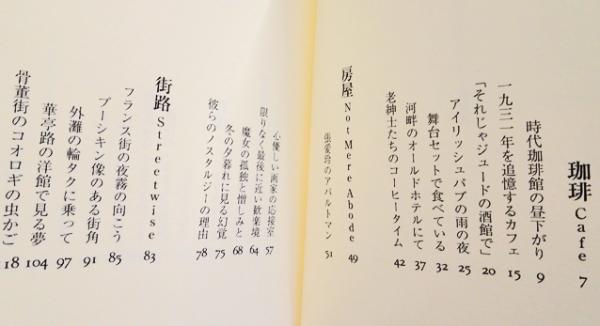 珈琲 Cafe 7
時代珈琲館の昼下がり 9
一九三一年を追憶するカフェ 15
「それじゃジュードの酒館で」 20
アイリッシュパブの雨の夜 25
舞台セットで食べている 32
河畔のオールドホテルにて 37
老紳士たちのコーヒータイム 42
房屋 Not Mere Abode 49
張愛玲のアパルトマン 51
心優しい画家の応接室 57
限りなく最後に近い歓楽境 64
魔女の孤独と憎しみと 68
冬の夕暮れに見る幻覚 75
彼らのノスタルジーの理由 78
街路 Streetwise 83
フランス街の夜霧の向こう 85
プーシキン像のある街角 91
外灘の輪タクに乗って 97
華亭路の洋館で見る夢 104
骨董街のコオロギの虫かご 18